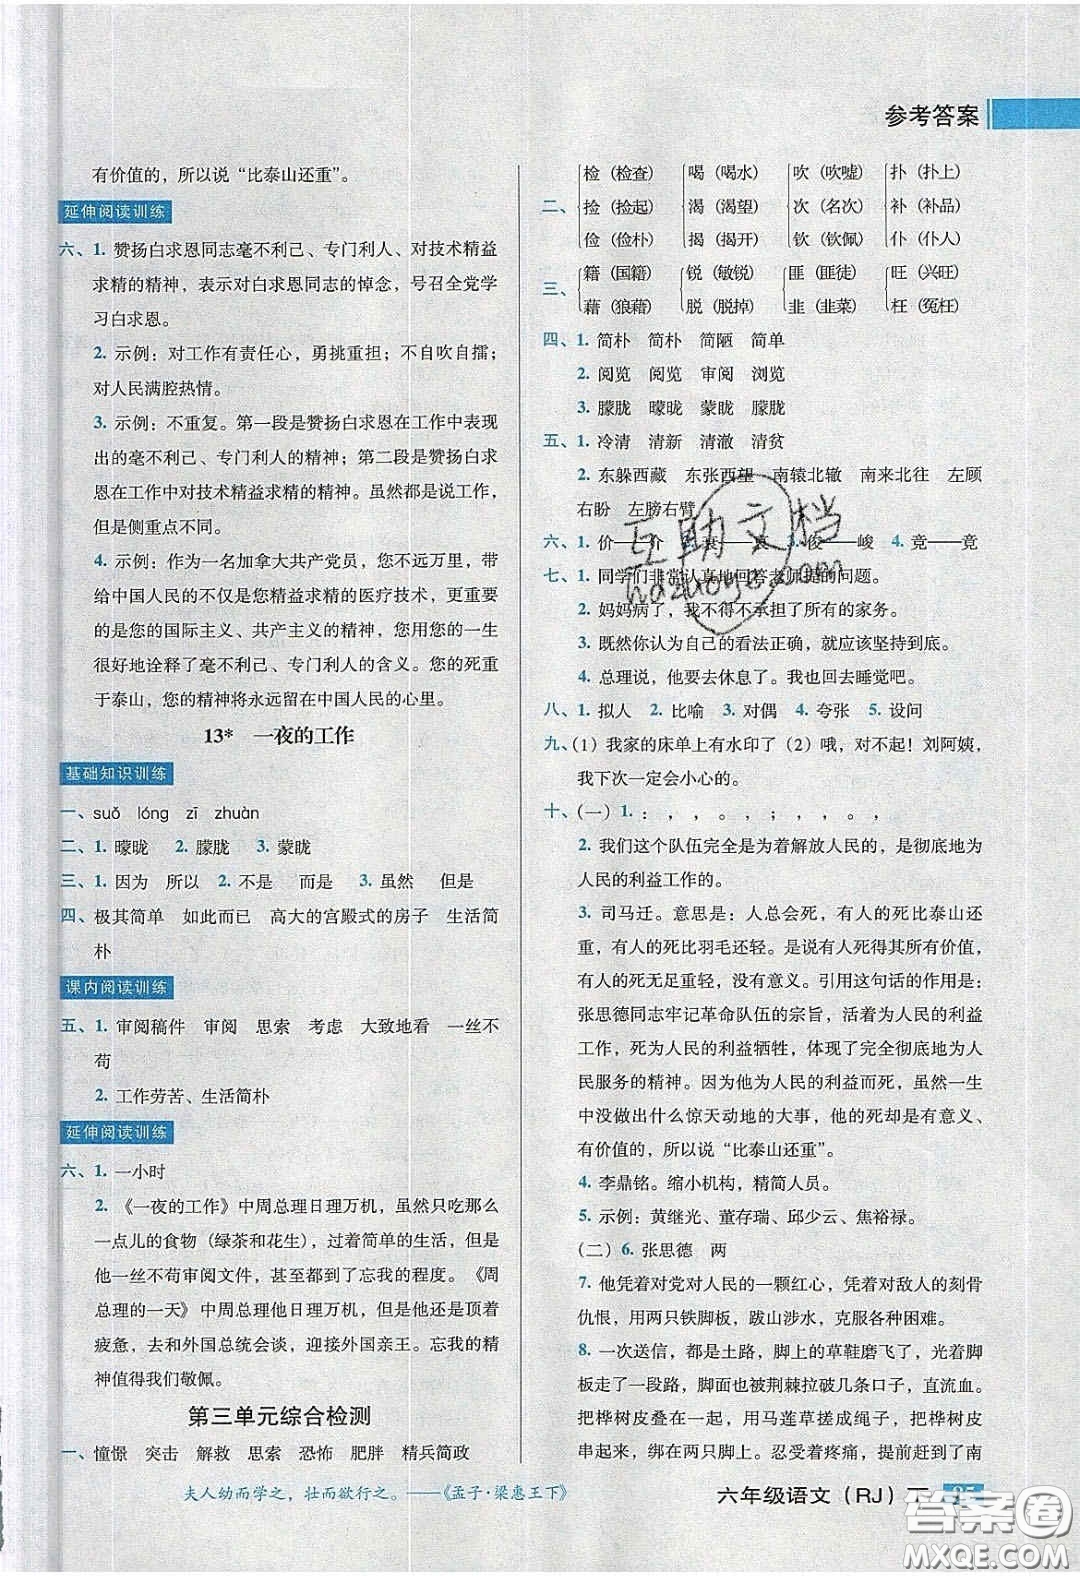 参考答案
有价值的，所以说“比泰山还重”。
延伸阅读训练
六、1. 赞扬白求恩同志毫不利己、专门利人、对技术精益
求精的精神，表示对白求恩同志的悼念，号召全党学
习白求恩。
2. 示例：对工作有责任心，勇挑重担；不自吹自擂；
对人民满腔热情。
3. 示例：不重复。第一段是赞扬白求恩在工作中表现
出的毫不利己、专门利人的精神；第二段是赞扬白求
恩在工作中对技术精益求精的精神。虽然都是说工作，
但是侧重点不同。
4. 示例：作为一名加拿大共产党员，您不远万里，带
给中国人民的不仅是您精益求精的医疗技术，更重要
的是您的国际主义、共产主义的精神，您用您的一生
很好地诠释了毫不利己、专门利人的含义。您的死重
于泰山，您的精神将永远留在中国人民的心里。
13* 一夜的工作
基础知识训练
一、suǒ lóng zī zhuàn
二、1. 曚昽 2. 朦胧 3. 蒙眬
三、1. 因为 所以 2. 不是 而是 3. 虽然 但是
四、极其简单 如此而已 高大的宫殿式的房子 生活简
朴
课内阅读训练
五、1. 审阅稿件 审阅 思索 考虑 大致地看 一丝不
苟
2. 工作劳苦、生活简朴
延伸阅读训练
六、1. 一小时
2. 《一夜的工作》中周总理日理万机，虽然只吃那么
一点儿的食物（绿茶和花生），过着简单的生活，但
他一丝不苟审阅文件，甚至都到了忘我的程度。《周
总理的一天》中周总理他日理万机，但是他还是顶着
疲惫，去和外国总统会谈，迎接外国亲王。忘我的精
神值得我们敬佩。
第三单元综合检测
一、憧憬 突击 解救 思索 恐怖 肥胖 精兵简政
二、
检（检查） 喝（喝水） 吹（吹嘘） 扑（扑上）
捡（捡起） 渴（渴望） 次（名次） 补（补品）
俭（俭朴） 揭（揭开） 钦（钦佩） 仆（仆人）
三、
籍（国籍） 锐（敏锐） 匪（匪徒） 旺（兴旺）
藉（狼藉） 脱（脱掉） 韭（韭菜） 枉（冤枉）
四、1. 简朴 简朴 简陋 简单
2. 阅览 阅览 审阅 浏览
3. 朦胧 曚昽 蒙眬 朦胧
五、1. 冷清 清新 清澈 清贫
2. 东躲西藏 东张西望 南辕北辙 南来北往 左顾
右盼 左膀右臂
六、1. 价——介 3. 俊——峻 4. 竞——竟
七、1. 同学们非常认真地回答老师提的问题。
2. 妈妈病了，我不得不承担了所有的家务。
3. 既然你认为自己的看法正确，就应该坚持到底。
4. 总理说，他要去休息了。我也回去睡觉吧。
八、1. 拟人 2. 比喻 3. 对偶 4. 夸张 5. 设问
九、（1）我家的床单上有水印了（2）哦，对不起！刘阿姨，
我下次一定会小心的。
十、（一）1. ：，，。，；，，。，
2. 我们这个队伍完全是为着解放人民的，是彻底地为
人民的利益工作的。
3. 司马迁。意思是：人总会死，有人的死比泰山还
重，有人的死比羽毛还轻。是说有人死得其所有价值，
有人的死无足轻重，没有意义。引用这句话的作用是：
张思德同志牢记革命队伍的宗旨，活着为人民的利益
工作，死为人民的利益牺牲，体现了完全彻底地为人
民服务的精神。因为他为人民的利益而死，虽然一生
中没做出什么惊天动地的大事，他的死却是有意义、
有价值的，所以说“比泰山还重”。
4. 李鼎铭。缩小机构，精简人员。
5. 示例：黄继光、董存瑞、邱少云、焦裕禄。
（二）6. 张思德 两
7. 他凭着对党对人民的一颗红心，凭着对敌人的刻骨
仇恨，用两只铁脚板，跋山涉水，克服各种困难。
8. 一次送信，都是土路，脚上的草鞋磨烂了，光着脚
板走了一段路，脚板被荆棘拉破几条口子，直流血。
把桦树皮叠在一起，用马莲草搓成绳子，把桦树皮
串起来，绑在两只脚上。忍受着疼痛，提前赶到了南
互助文档
夫人幼而学之，壮而欲行之。——《孟子·梁惠王下》
六年级语文（RJ）下 95
答案圈
MXQE.COM